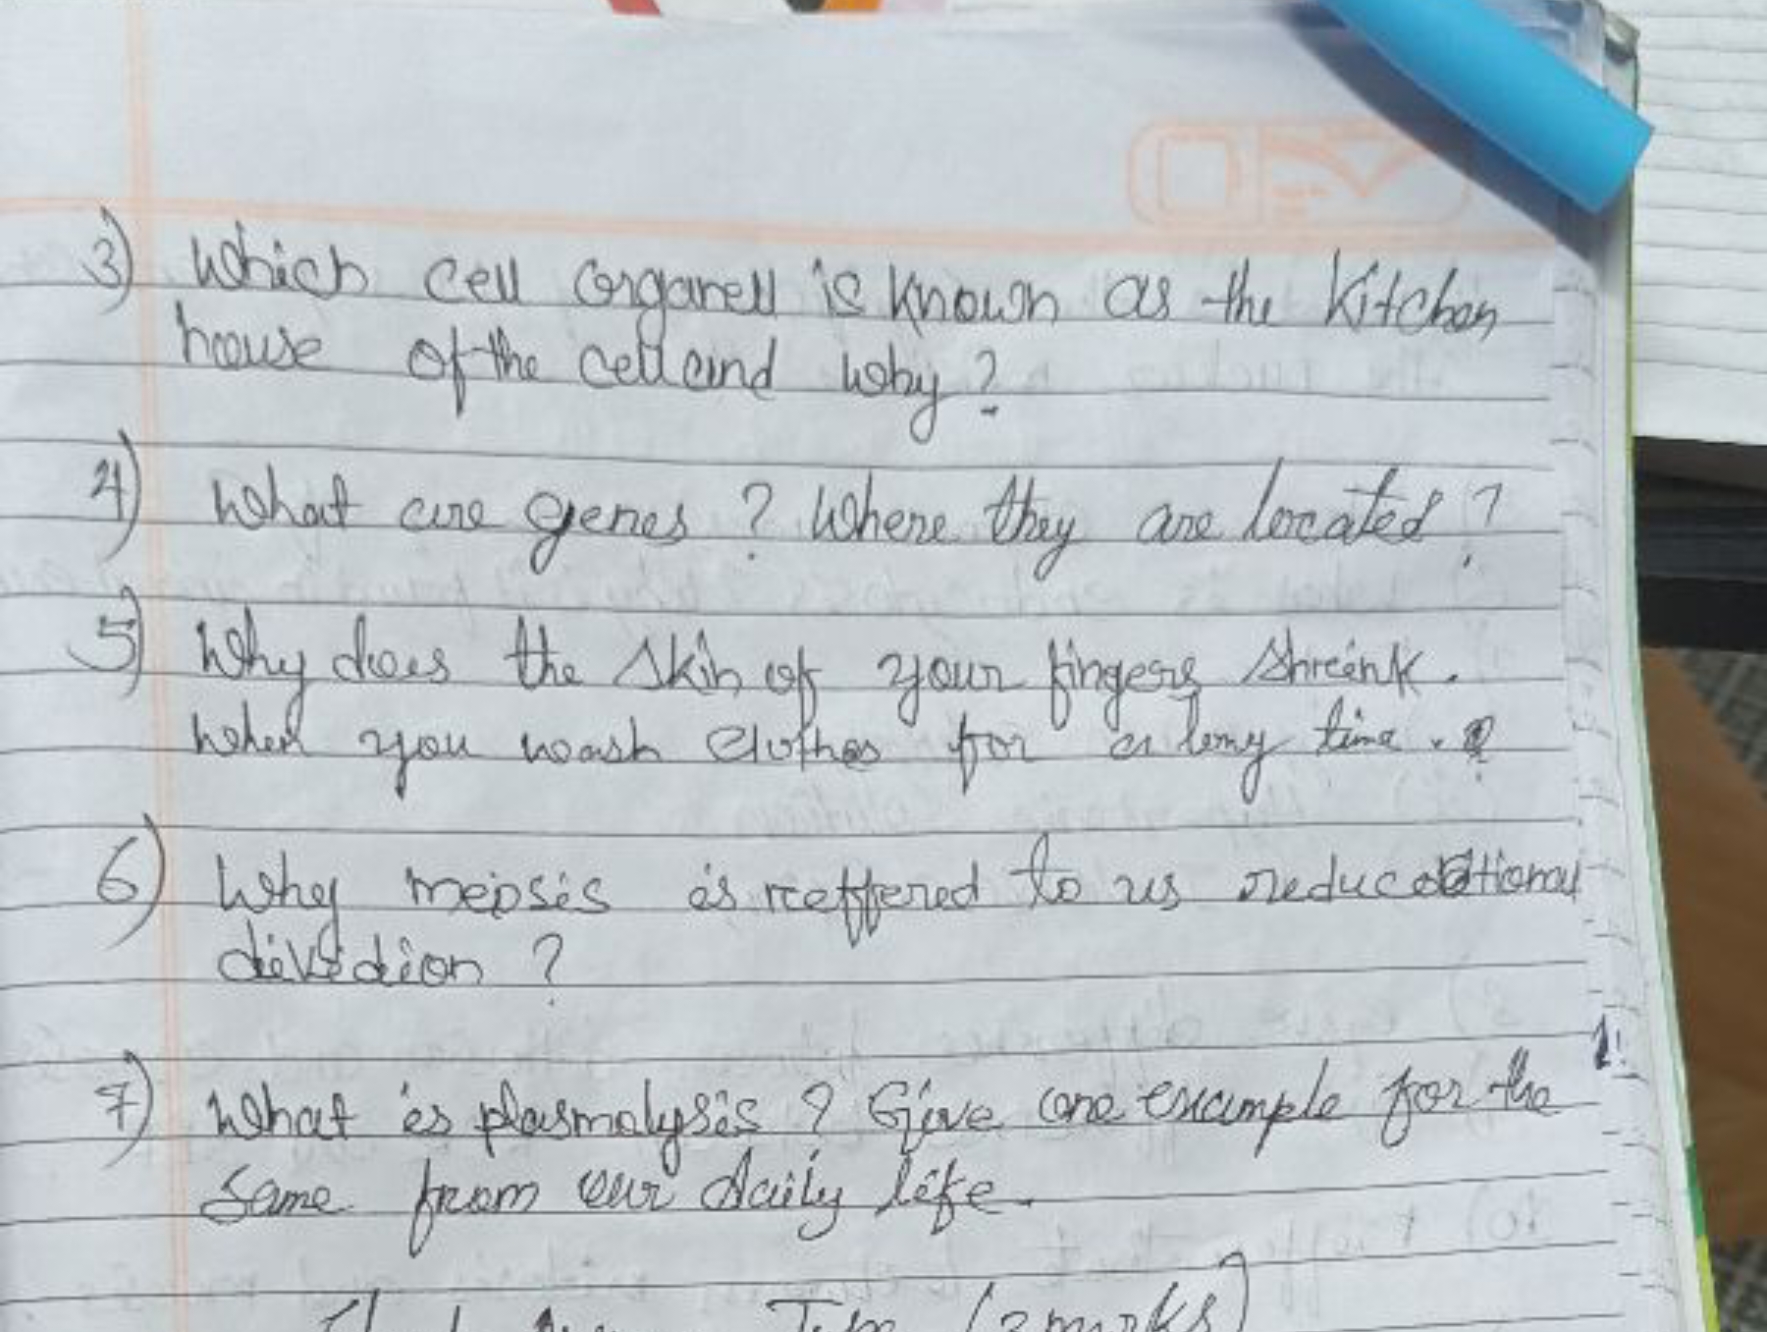 3) Which cell organell is known as the kitchen
house of the cell and why?
4) What are genes? Where they are located?
5) Why does the skin of your fingers shrink.
when you wash clothes for a long time.?
6) Why meiosis is reffered to us reducational
dividion?
7) What is plasmolysis? Give one example for the
same from our daily life.
Type (2 marks)